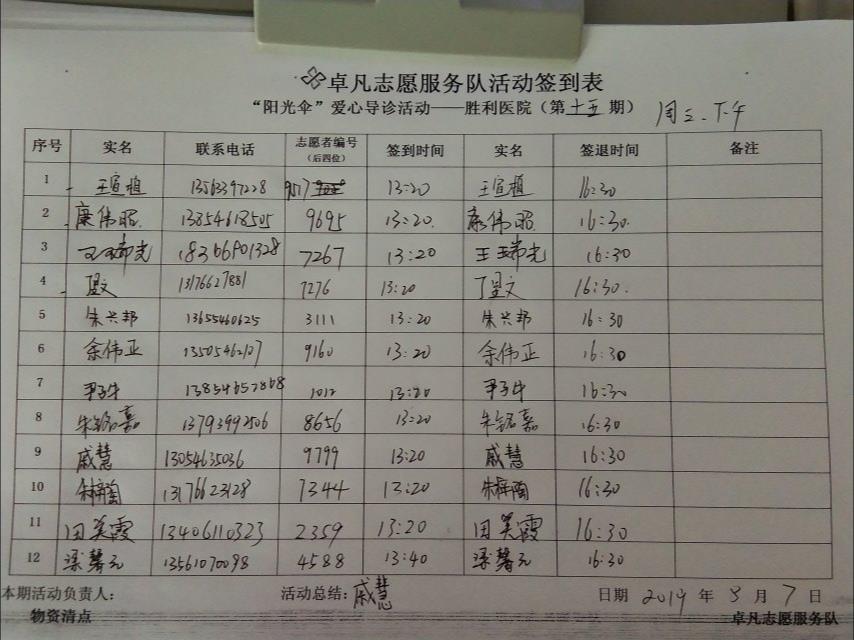 卓凡志愿服务队活动签到表
“阳光伞”爱心导诊活动——胜利医院（第十五期） 周三.下午
序号 实名 联系电话 志愿者编号（后四位） 签到时间 实名 签退时间 备注
1 王宣植 13563397228 9517 13:20 王宣植 16:30
2 康伟昭 13854618505 9695 13:20 康伟昭 16:30
3 王瑞光 18366901328 7267 13:20 王瑞光 16:30
4 丁盟文 13176627881 7276 13:20 丁盟文 16:30
5 朱兴邦 13655460625 3111 13:20 朱兴邦 16:30
6 余伟正 13505462107 9160 13:20 余伟正 16:30
7 13854657868 1012 13:20 16:30
8 朱铭嘉 13793992506 8656 13:20 朱铭嘉 16:30
9 戚慧 13054635036 9799 13:20 戚慧 16:30
10 朱梓陶 13176623128 7344 13:20 朱梓陶 16:30
11 田美霞 13406110323 2359 13:20 田美霞 16:30
12 梁馨元 13561070098 4588 13:40 梁馨元 16:30
本期活动负责人： 活动总结：戚慧 日期 2019 年 3 月 7 日
物资清点 卓凡志愿服务队